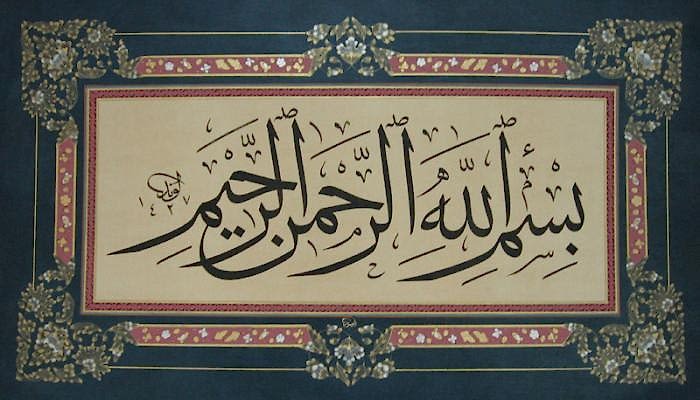 بِسْمِ اللَّهِ الرَّحْمَنِ الرَّحِيمِ
١٤٢٧